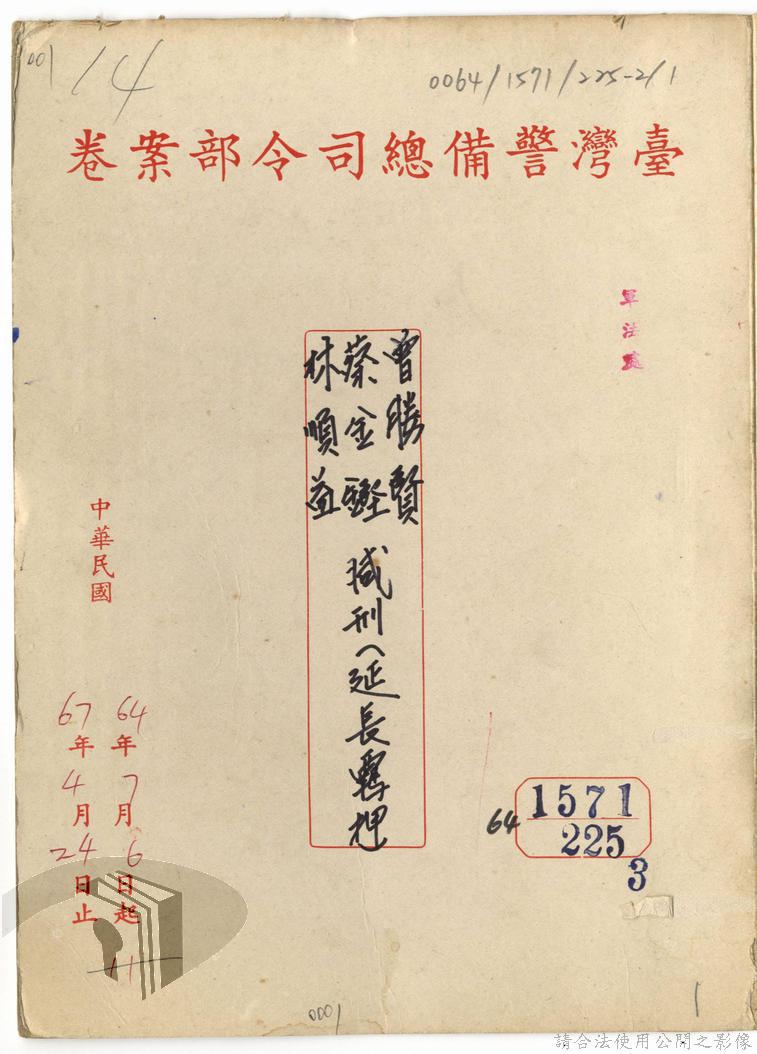 001
14
0064/1571/225-2/1
臺灣警備總司令部案卷
軍法處
曾勝賢
蔡金鏗
林順益
減刑(延長羈押
中華民國
64年7月6日起
67年4月24日止
11
64
1571
225
3
0001
請合法使用公開之影像